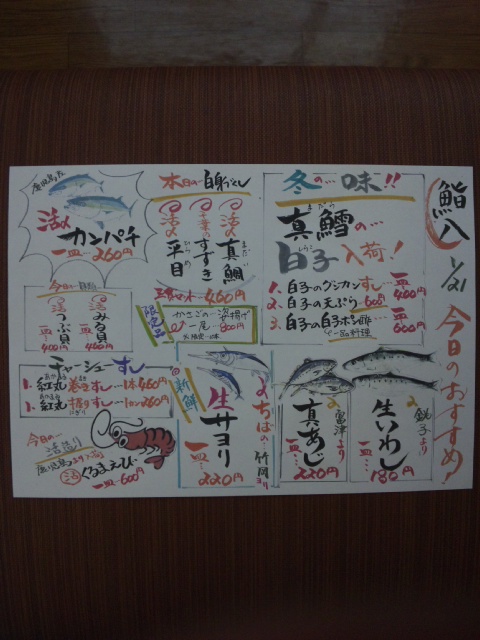 鮨八 1/21
今日のおすすめ!
冬の…味!!
真鱈の…
まだら
白子入荷!
しらこ
1. 白子のグンカンすし 一皿400円
2. 白子の天ぷら 600円
3. 白子の白子ポン酢 一皿600円
一品料理
本日の…白身づくし
活〆 真鯛
まだい
千葉の すずき
活〆 平目
ひらめ
460円
限定品
かさごの…姿揚げ
一尾 800円
鹿児島産
活〆
カンパチ
一皿…260円
今日の
活 みる貝
一皿 460円
活 つぶ貝
一皿 460円
チャーシューすし
1. 紅丸巻きすし…1本460円
1. 紅丸握りすし…1カン260円
今日の…
活造り
鹿児島より入荷
活 くるまえび
一皿…600円
新鮮
ちばの…竹岡より
生サヨリ
一皿…220円
富津より
真あじ
一皿…220円
銚子より
生いわし
一皿…180円